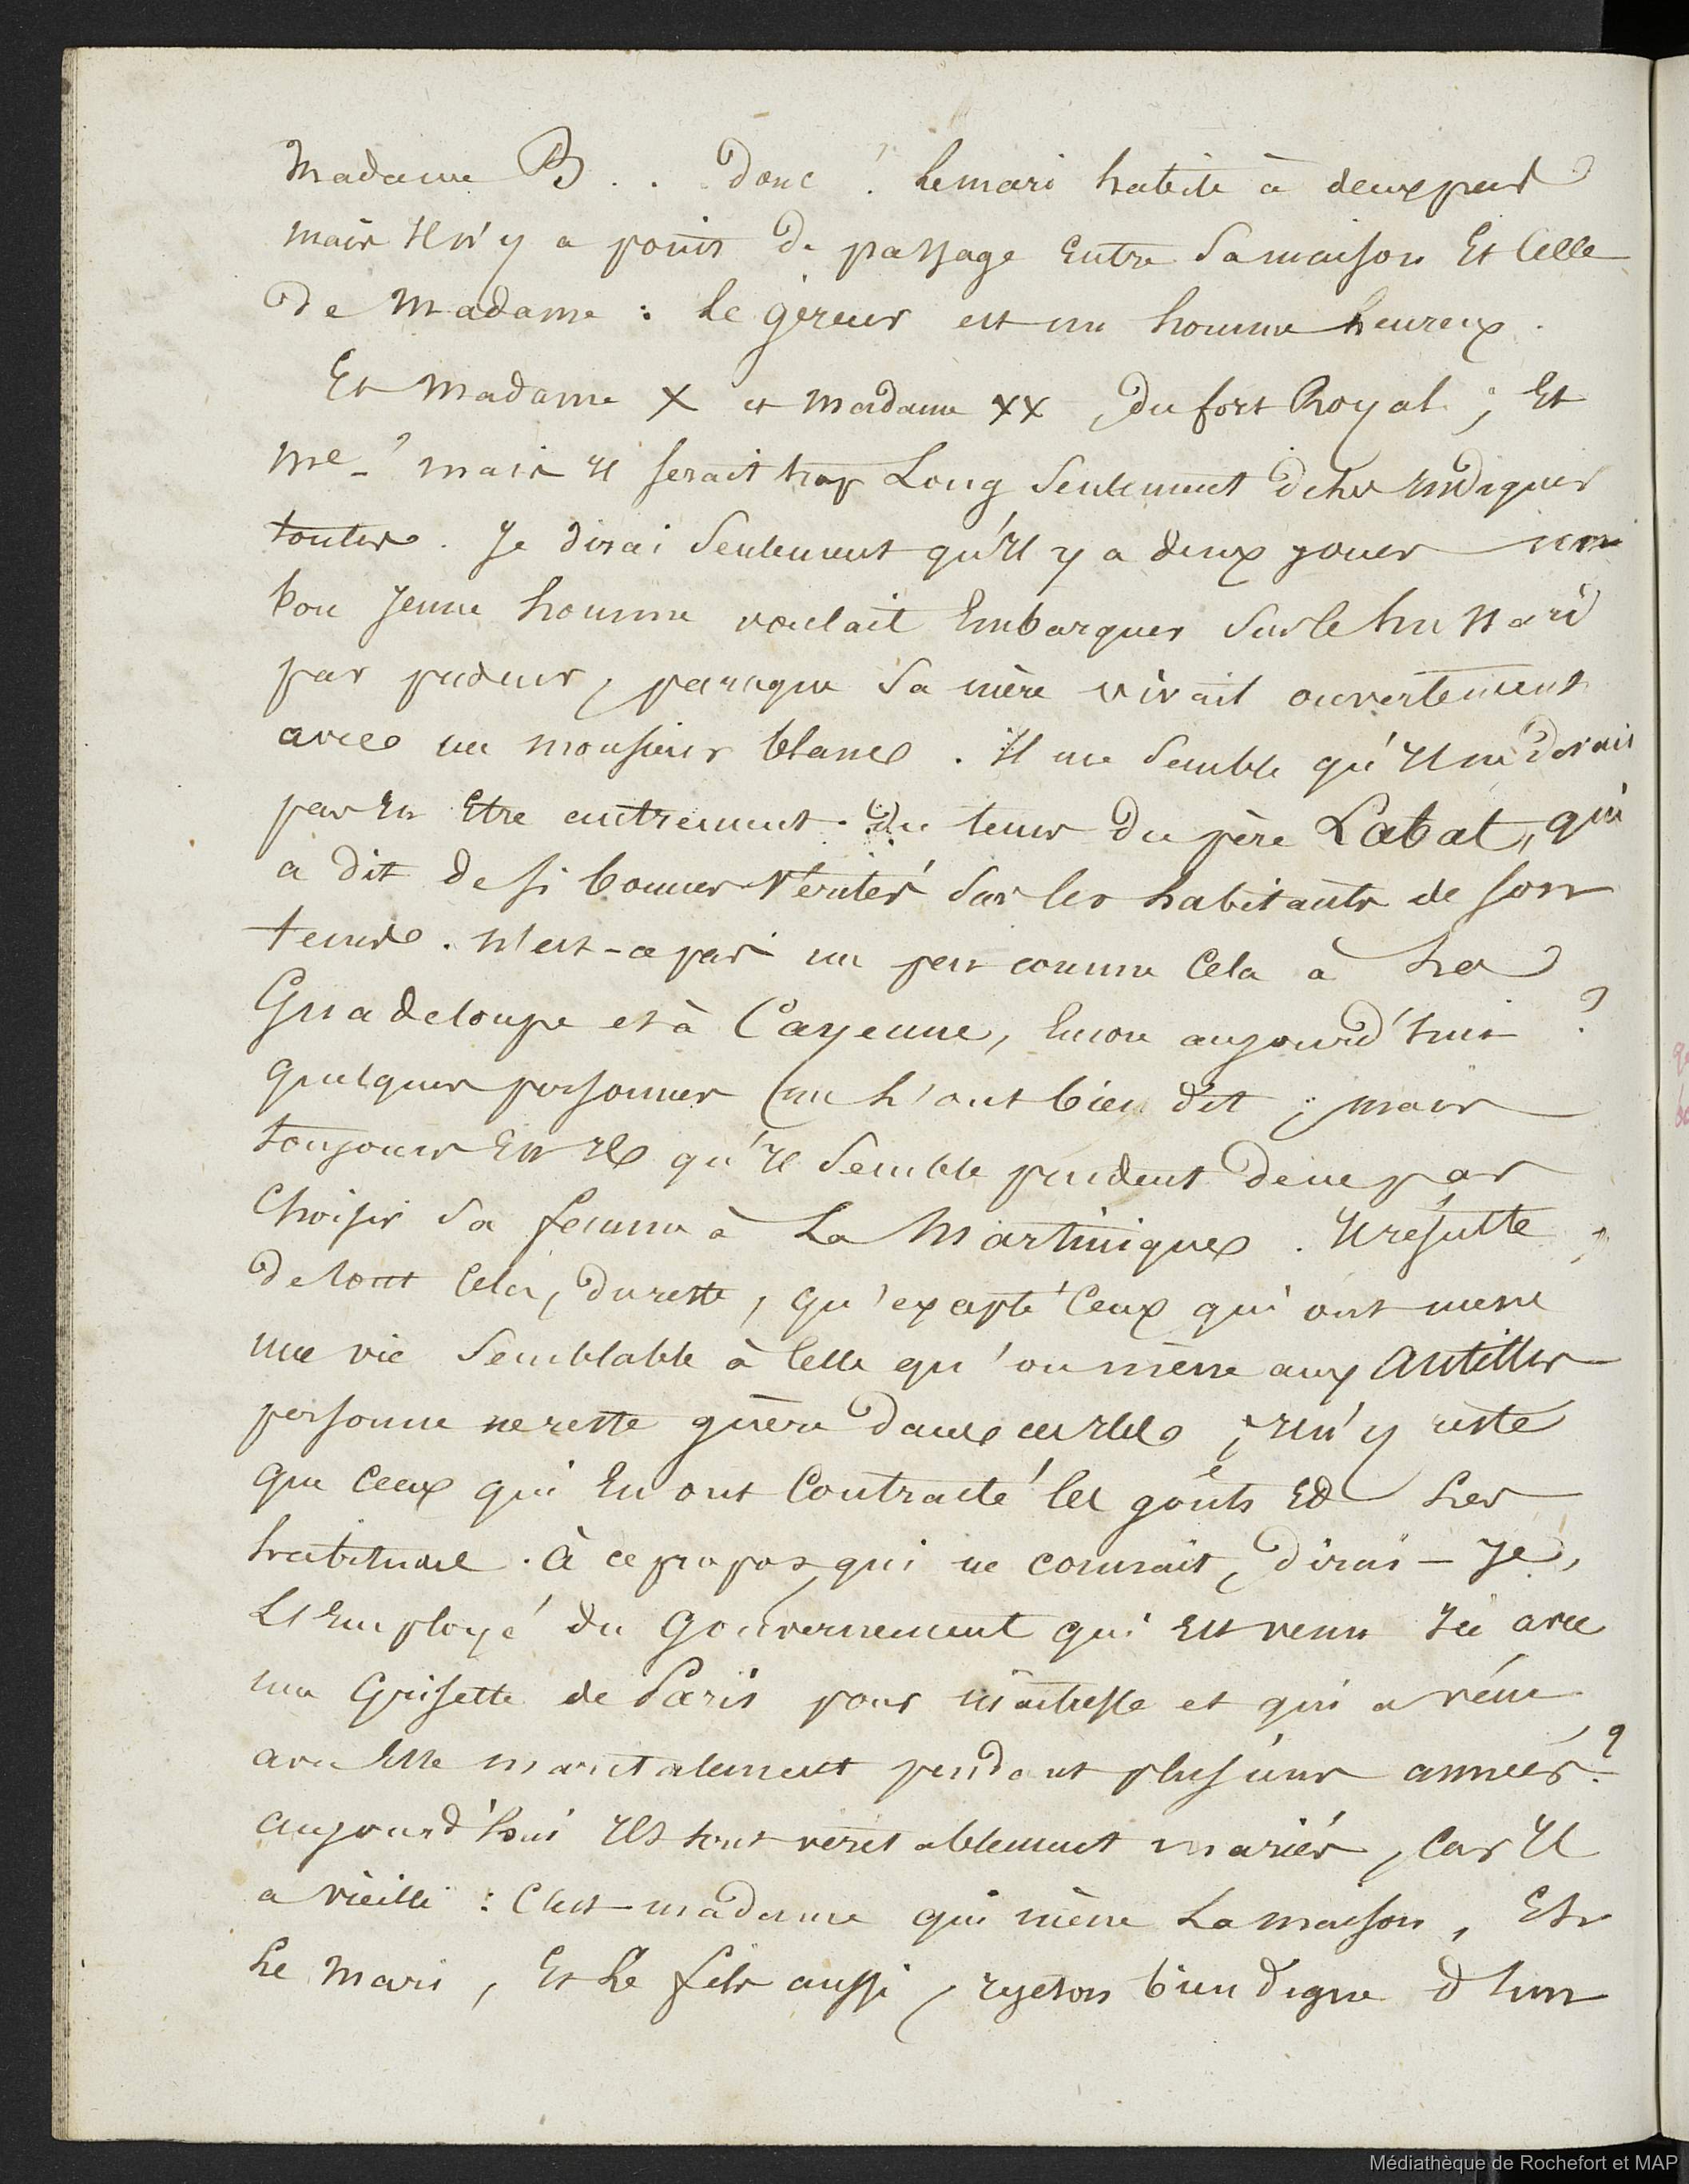 Madame B . . donc ! Le mari habite à deux pas
mais il n'y a point de passage entre sa maison et celle
de Madame : le géreur est un homme heureux .
Et madame X et madame XX du fort Royal ; Et
Me - ! mais il serait trop Long seulement de les indiquer
toutes . Je dirai seulement qu'il y a deux jours un
bon jeune homme voulait Embarquer sur le hussard
par pudeur, parceque sa mère vivait ouvertement
avec un monsieur blanc . Il me semble qu'il ne devait
pas en être autrement du tems du père Labat, qui
a dit de si bonnes vérités sur les habitants de son
tems . N'est-ce pas un peu comme cela à La
Guadeloupe et à Cayenne, Encore aujourd'hui ?
quelques personnes me l'ont bien dit ; mais
toujours est il qu'il semble prudent de ne pas
choisir sa femme à La Martinique . Il résulte
de tout cela, du reste, qu'excepté ceux qui ont mené
une vie semblable à celle qu'on mène aux Antilles
personne ne reste guère dans ces iles ; il n'y reste
que ceux qui en ont contracté les goûts et les
habitudes . à ce propos qui ne connait, dirai-je,
L'Employé du Gouvernement qui est venu ici avec
une Grisette de Paris pour maitresse et qui a vécu
avec elle maritalement pendant plusieurs années ?
aujourd'hui ils sont véritablement mariés, car il
a vieilli : c'est madame qui mène la maison, Et
Le Mari, Et Le fils aussi, rejeton bien digne d'un
Médiathèque de Rochefort et MAP